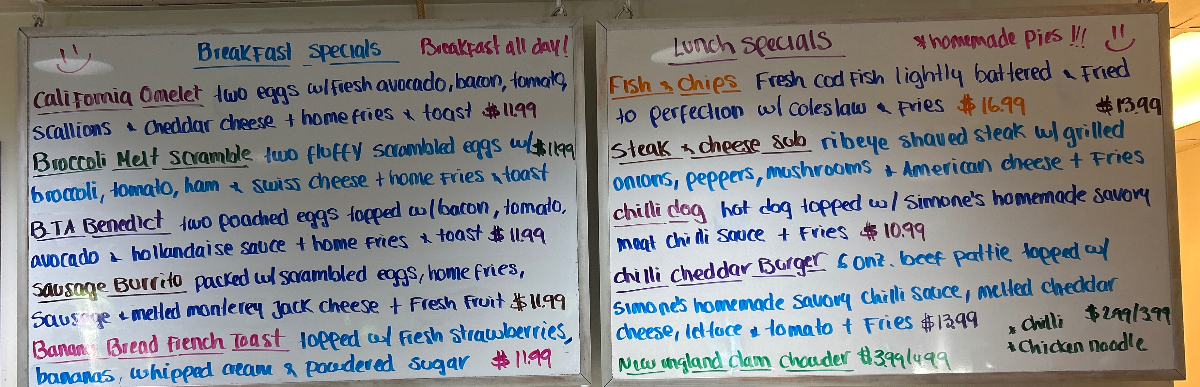 Breakfast specials Breakfast all day!
California Omelet two eggs w/fresh avocado, bacon, tomato,
scallions & cheddar cheese + homefries & toast $11.99
Broccoli Melt scramble two fluffy scrambled eggs w/ $11.99
broccoli, tomato, ham & swiss cheese + home fries & toast
B.T.A Benedict two poached eggs topped w/ bacon, tomato,
avocado & hollandaise sauce + home fries & toast $11.99
Sausage Burrito packed w/ scrambled eggs, home fries,
sausage & melted monterey Jack cheese + Fresh Fruit $11.99
Banana Bread French Toast topped w/ fresh strawberries,
bananas, whipped cream & powdered sugar $11.99
Lunch specials *homemade pies !!!
Fish & Chips Fresh cod fish lightly battered & fried
to perfection w/ coleslaw & fries $16.99 $13.99
Steak & cheese sub ribeye shaved steak w/ grilled
onions, peppers, mushrooms & American cheese + Fries
chilli dog hot dog topped w/ Simone's homemade savory
meat chilli sauce + Fries $10.99
chilli cheddar Burger 6 onz. beef pattie topped w/
Simone's homemade savory chilli sauce, melted cheddar
cheese, lettuce & tomato + Fries $13.99
New england clam chowder $3.99/4.99
*chilli $2.99/3.99
*Chicken noodle